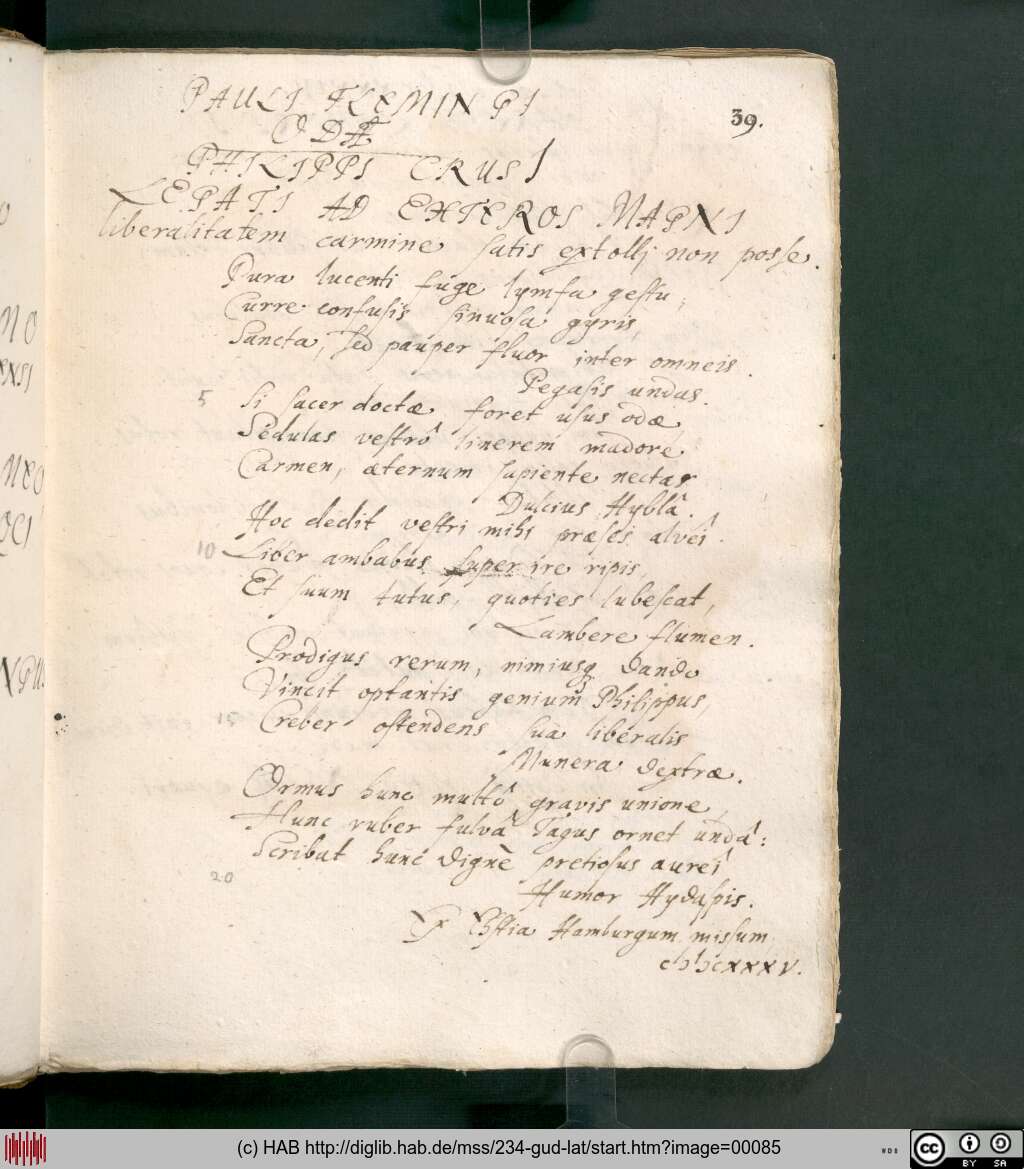 39.
PAULI FLEMINGI
ODÆ
PHILIPPI CRUSI
LEGATI AD EXTEROS MAGNI
liberalitatem carmine satis extolli non posse.
Pura lucenti fuge lymfa gestu,
Curre confusis sinuosa gyris,
Sancta, sed pauper fluor inter omneis
Pegasis undas.
5 Si sacer doctæ foret usus odæ
Sedulas vestrô linerem madore
Carmen, æternum sapiente nectar
Dulcius Hyblâ.
Hoc dedit vestri mihi præses alvei
10 Liber ambabus super ire ripis,
Et suum tutus, quoties lubescat,
Lambere flumen.
Prodigus rerum, nimiusq dando
Vincit optantis genium Philippus,
15 Creber ostendens sua liberalis
Munera dextræ.
Ormus hunc multô gravis unione
Hunc ruber fulvâ Tagus ornet undâ:
Scribat hunc dignè pretiosus aurei
20 Humor Hydaspis.
Ex Esthia Hamburgum missum
cIɔ Iɔ cxxxv.
MO
XXSI
MEO
OCI
NGUS
(c) HAB http://diglib.hab.de/mss/234-gud-lat/start.htm?image=00085
WDB
cc
BY SA